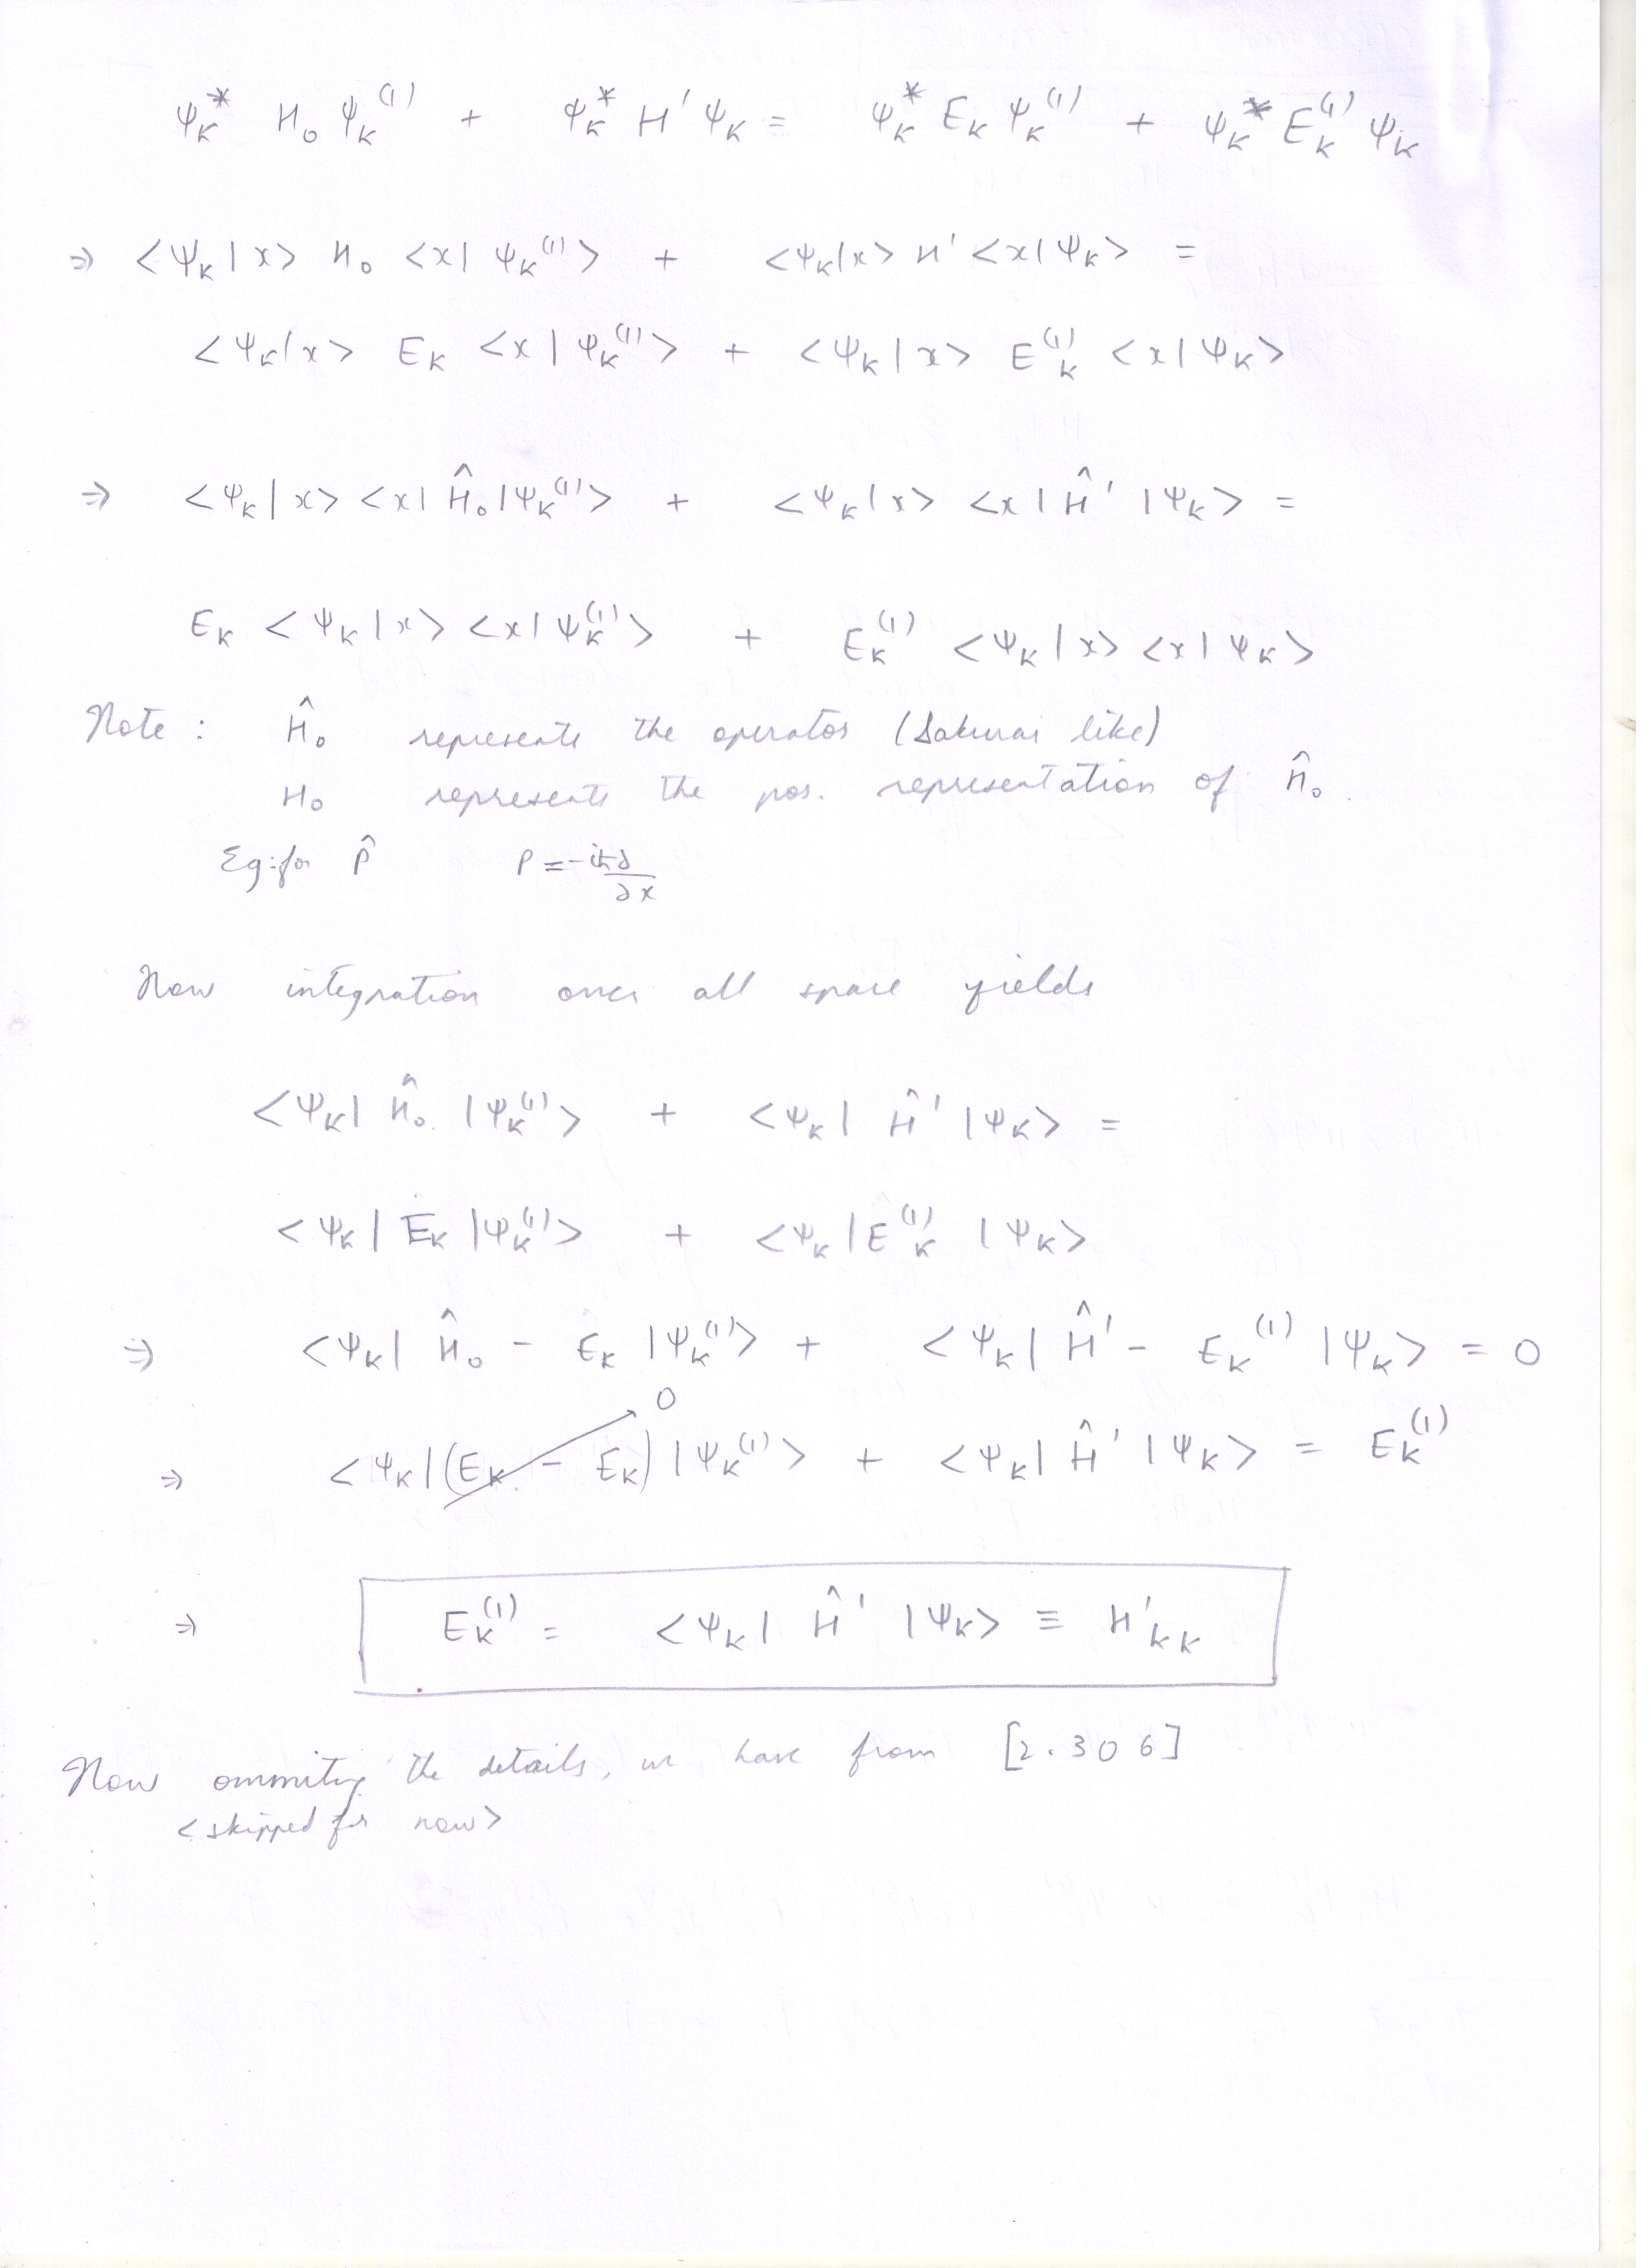 ψ_K^* H_0 ψ_K^(1) + ψ_K^* H' ψ_K = ψ_K^* E_K ψ_K^(1) + ψ_K^* E_K^(1) ψ_K
⇒ <ψ_K|x> H_0 <x|ψ_K^(1)> + <ψ_K|x> H' <x|ψ_K> =
<ψ_K|x> E_K <x|ψ_K^(1)> + <ψ_K|x> E_K^(1) <x|ψ_K>
⇒ <ψ_K|x> <x|Ĥ_0|ψ_K^(1)> + <ψ_K|x> <x|Ĥ'|ψ_K> =
E_K <ψ_K|x> <x|ψ_K^(1)> + E_K^(1) <ψ_K|x> <x|ψ_K>
Note : Ĥ_0 represents the operator (Sakurai like)
H_0 represents the pos. representation of Ĥ_0.
Eg: for p̂ p = -iħ∂/∂x
Now integration over all space yields
<ψ_K| Ĥ_0 |ψ_K^(1)> + <ψ_K| Ĥ' |ψ_K> =
<ψ_K| E_K |ψ_K^(1)> + <ψ_K| E_K^(1) |ψ_K>
⇒ <ψ_K| Ĥ_0 - E_K |ψ_K^(1)> + <ψ_K| Ĥ' - E_K^(1) |ψ_K> = 0
0
⇒ <ψ_K|(E_K - E_K)|ψ_K^(1)> + <ψ_K| Ĥ' |ψ_K> = E_K^(1)
⇒ E_K^(1) = <ψ_K| Ĥ' |ψ_K> ≡ H'_KK
Now ommiting the details, we have from [2.306]
<skipped for now>